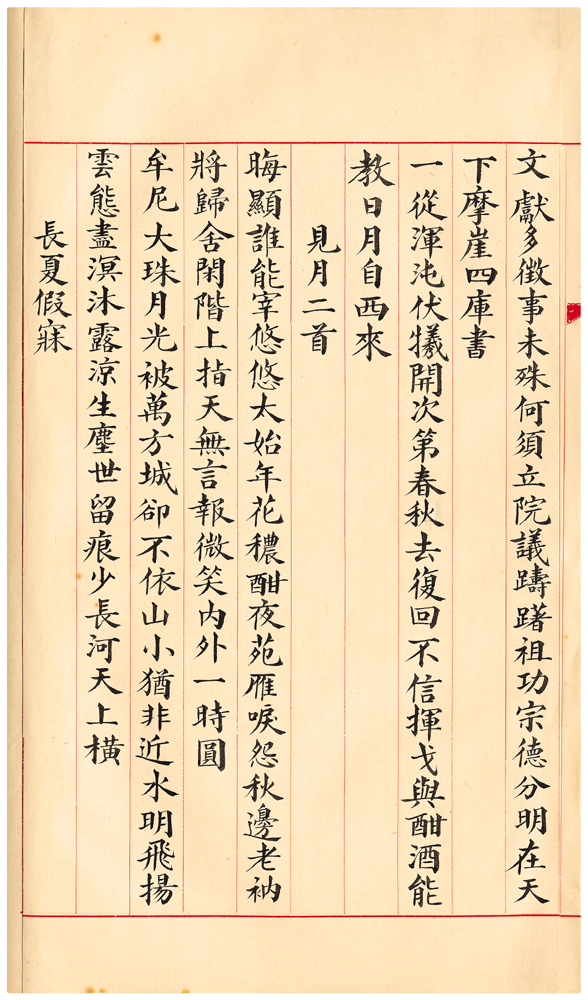 文獻多徵事未殊何須立院議躊躇祖功宗德分明在天
下摩崖四庫書
一從渾沌伏犧開次第春秋去復回不信揮戈與酣酒能
教日月自西來
見月二首
晦顯誰能宰悠悠太始年花穠酣夜苑雁唳怨秋邊老衲
將歸舍閑階上指天無言報微笑內外一時圓
牟尼大珠月光被萬方城卻不依山小猶非近水明飛揚
雲態盡溟沐露涼生塵世留痕少長河天上橫
長夏假寐